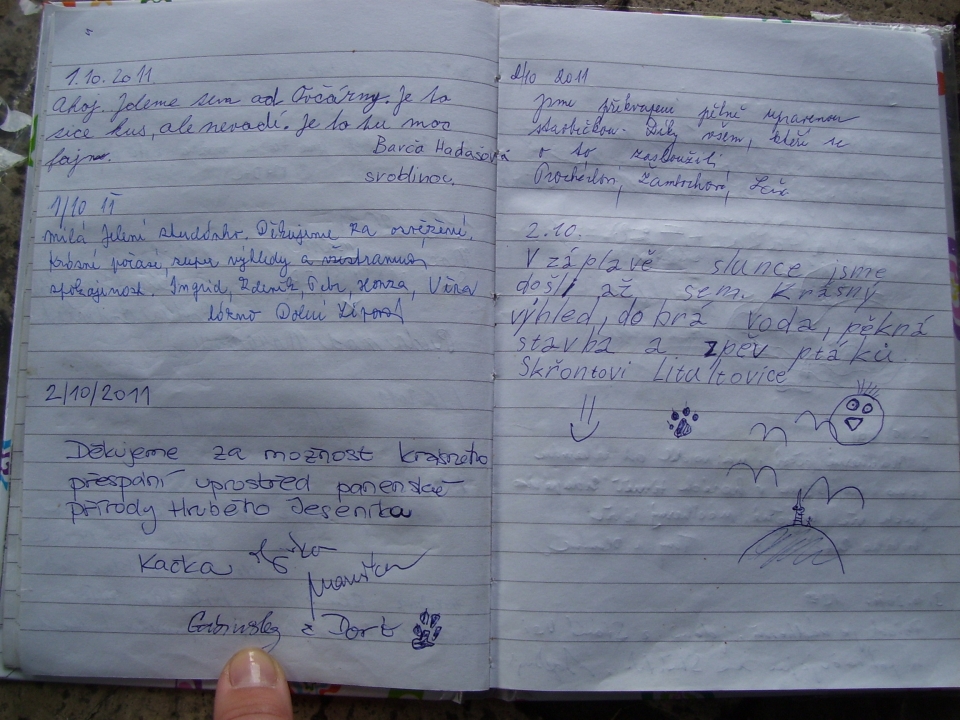 1.10.2011
Ahoj. Jdeme sem od Ovčárny. Je to
sice kus, ale nevadí. Je to tu moc
fajn.
Barča Hadašová
s rodinou.
1/10 11
Milá Jelení studánko. Děkujeme za osvěžení,
krásné počasí, super výhledy a všestrannou
spokojenost. Ingrid, Zdeněk, Petr, Honza, Věra
Dolní
2/10/2011
Děkujeme za možnost krásného
přespání uprostřed panenské
přírody Hrubého Jeseníka
Kačka
z Dort
2/10 2011
Jsme překvapeni pěkně upravenou
stavbičkou. Díky všem, kteří se
o to zasloužili
2.10.
V záplavě slunce jsme
došli až sem. Krásný
výhled, dobrá voda, pěkná
stavba a zpěv ptáků.
Skřontovi Litultovice